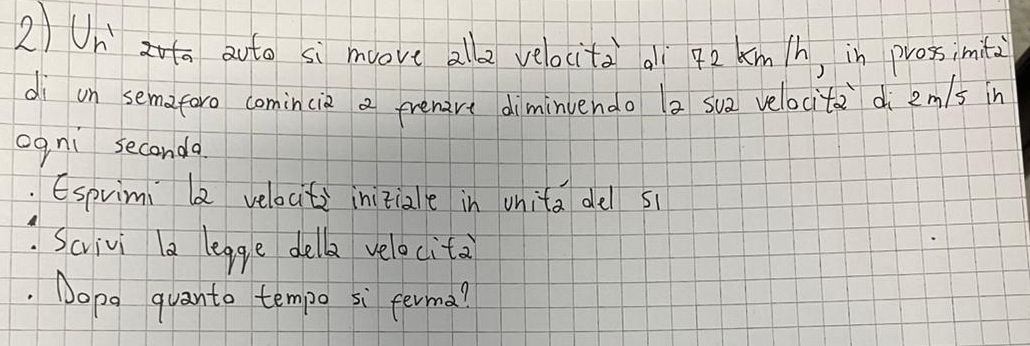 2) Un' auto si muove alla velocità di 72 km/h, in prossimità
di un semaforo comincia a frenare diminuendo la sua velocità di 2 m/s in
ogni secondo.
. Esprimi la velocità iniziale in unitá del SI
. Scrivi la legge della velocità
. Dopo quanto tempo si ferma?